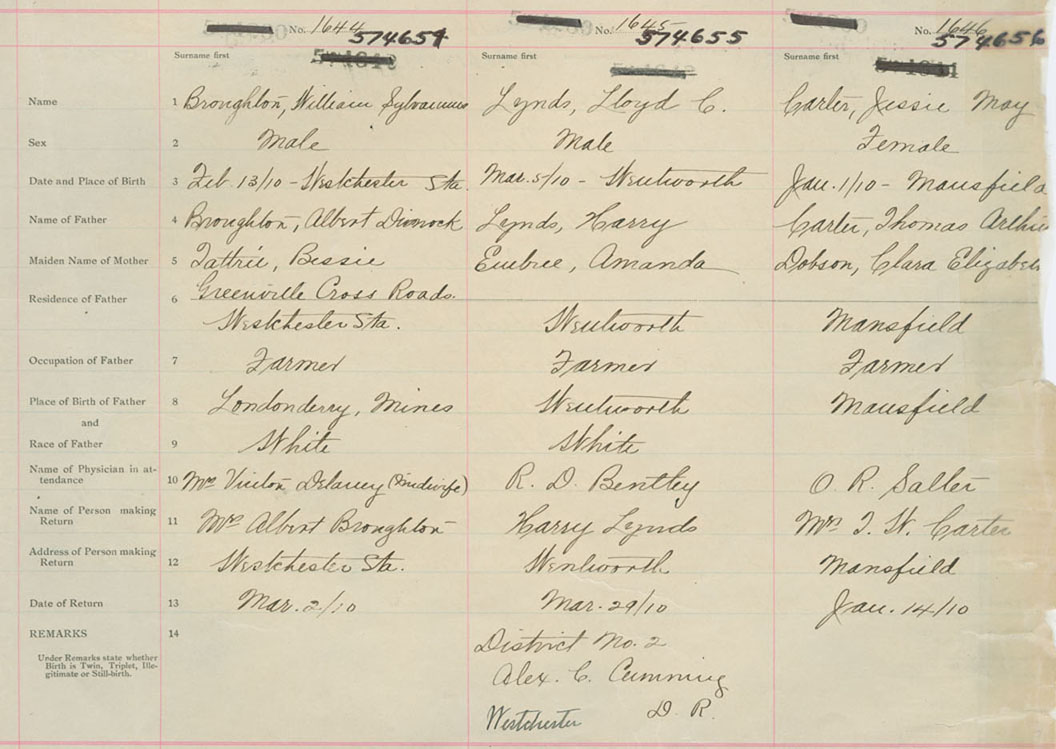 No. 1644 No. 1645 No. 1646
574654 574655 574656
Surname first Surname first Surname first
Name 1 Broughton, William Sylvanus Lynds, Lloyd C. Carter, Jessie May
Sex 2 Male Male Female
Date and Place of Birth 3 Feb. 13/10 - Westchester Sta. Mar. 5/10 - Wentworth Jan. 1/10 - Mansfield
Name of Father 4 Broughton, Albert Dimock Lynds, Harry Carter, Thomas Arthur
Maiden Name of Mother 5 Tattrie, Bessie Embree, Amanda Dobson, Clara Elizabeth
Greenville Cross Roads.
Residence of Father 6 Westchester Sta. Wentworth Mansfield
Occupation of Father 7 Farmer Farmer Farmer
Place of Birth of Father 8 Londonderry, Mines Wentworth Mansfield
and
Race of Father 9 White White
Name of Physician in at-
tendance 10 Mrs Vinton Delaney (midwife) R. D. Bentley O. R. Salter
Name of Person making
Return 11 Mrs Albert Broughton Harry Lynds Mrs T. W. Carter
Address of Person making
Return 12 Westchester Sta. Wentworth Mansfield
Date of Return 13 Mar. 2/10 Mar. 29/10 Jan. 14/10
REMARKS 14 District No. 2
Under Remarks state whether
Birth is Twin, Triplet, Ille-
gitimate or Still-birth.
Alex. C. Cumming
Westchester D. R.